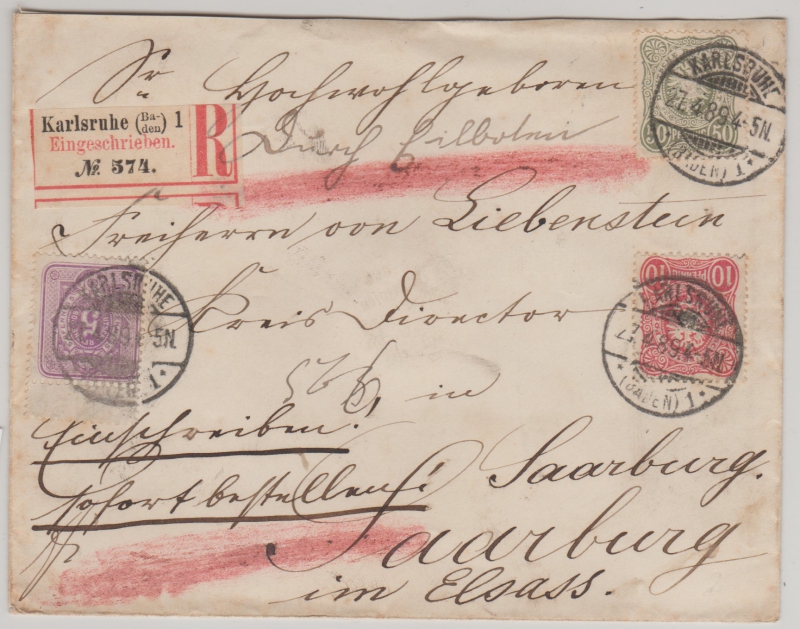 Sr Hochwohlgeboren
Durch Eilboten
Karlsruhe (Ba-den) 1
Eingeschrieben.
№ 574.
R
Freiherrn von Liebenstein
Kreis Director
in
Einschreiben!
Saarburg.
sofort bestellen!
Saarburg
im Elsass.
50 50
KARLSRUHE
27.4.89.4-5N.
(BADEN) 1
5
KARLSRUHE
89.4-5N.
1
10 10
KARLSRUHE
27.4.89.4-5N.
(BADEN) 1